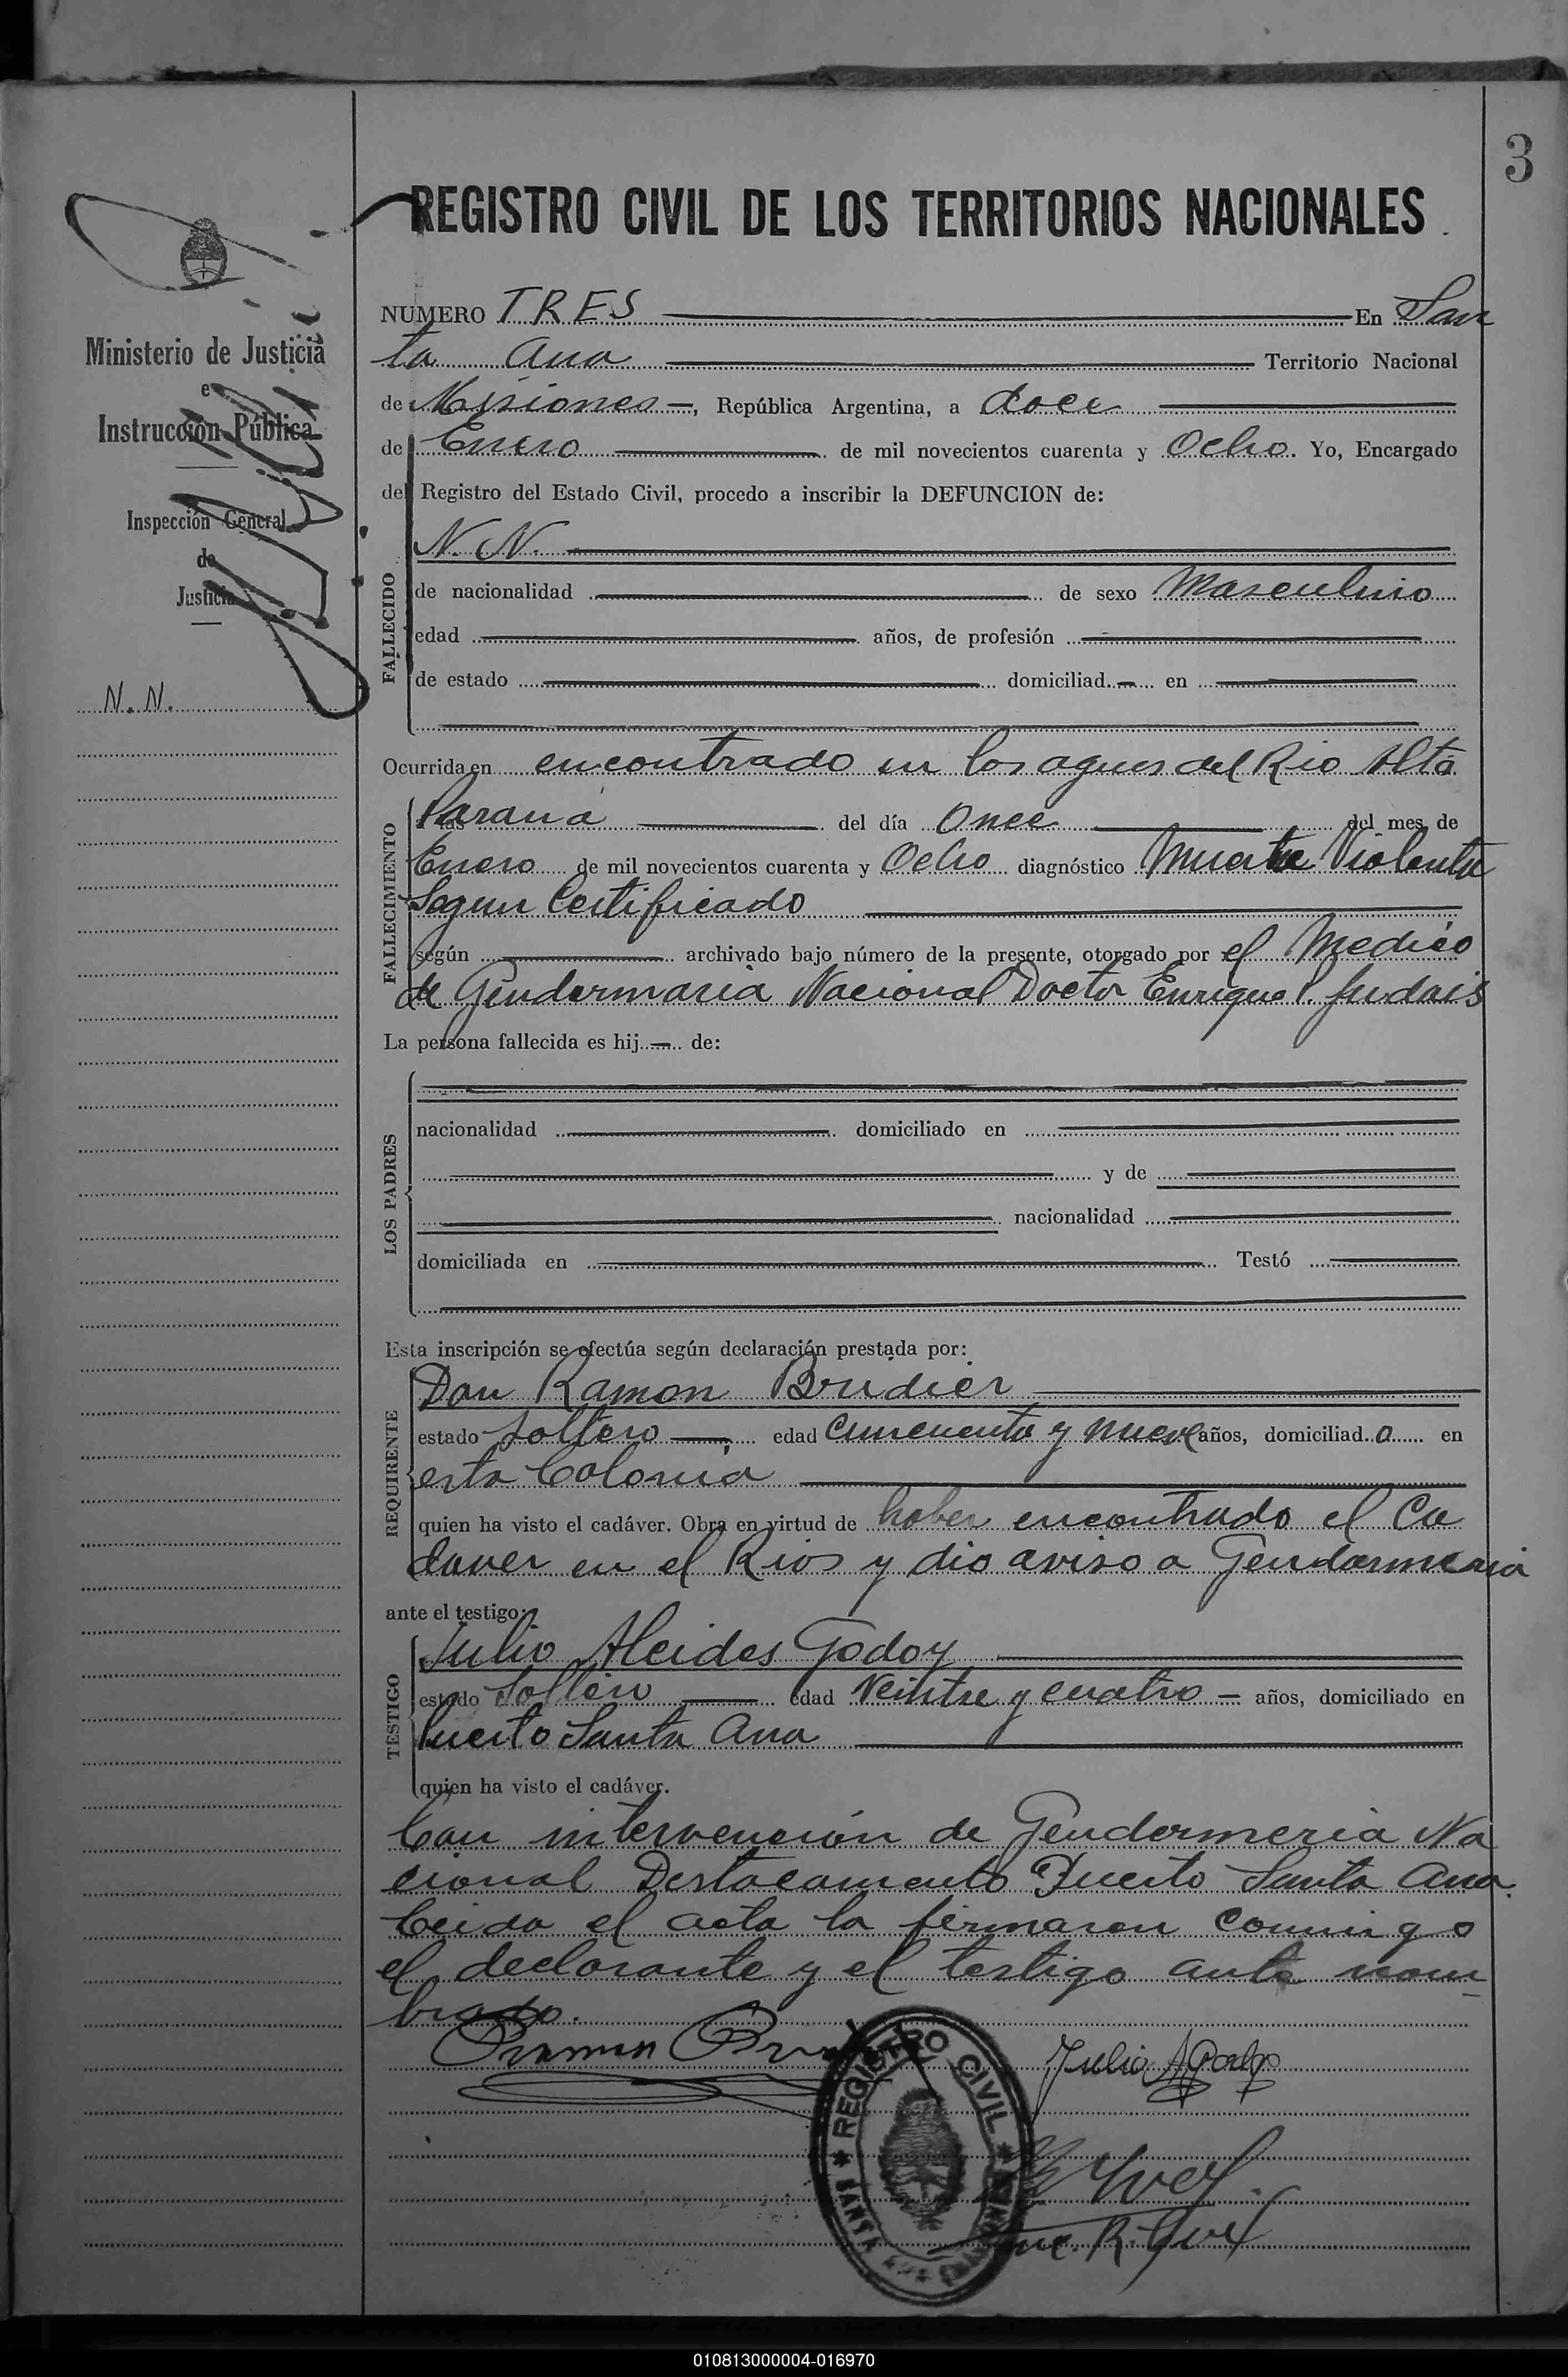 3
REGISTRO CIVIL DE LOS TERRITORIOS NACIONALES
Ministerio de Justicia
e
Instrucción Pública
Inspección General
de
Justicia
N. N.
NUMERO TRES En San
ta Ana Territorio Nacional
de Misiones -, República Argentina, a doce
de Enero de mil novecientos cuarenta y Ocho. Yo, Encargado
del Registro del Estado Civil, procedo a inscribir la DEFUNCION de:
FALLECIDO
N. N.
de nacionalidad de sexo Masculino
edad años, de profesión
de estado domiciliad - en
Ocurrida en encontrado en las aguas del Rio Alto
FALLECIMIENTO
Paraná del día Once del mes de
Enero de mil novecientos cuarenta y Ocho diagnóstico Muerte Violenta
Segun Certificado
según archivado bajo número de la presente, otorgado por el Medico
de Gendarmaria Nacional Doctor Enrique
La persona fallecida es hij - de:
LOS PADRES
nacionalidad domiciliado en
y de
nacionalidad
domiciliada en Testó
Esta inscripción se efectúa según declaración prestada por:
REQUIRENTE
Don Ramon Bridier
estado soltero edad cincuenta y nueve años, domiciliad o en
esta Colonia
quien ha visto el cadáver. Obra en virtud de haber encontrado el Ca
daver en el Rios y dio aviso a Gendarmeria
ante el testigo:
TESTIGO
Julio Alcides Godoy
estado Soltero edad Veintre y cuatro - años, domiciliado en
Puerto Santa Ana
quien ha visto el cadáver.
Con intervención de Gendermeria Na
cional Destacamento Puerto Santa Ana.
Leida el acta la firmaron conmigo
el declarante y el testigo ante nom
brado.
Ramon
Julio A Godoy
REGISTRO CIVIL
SANTA